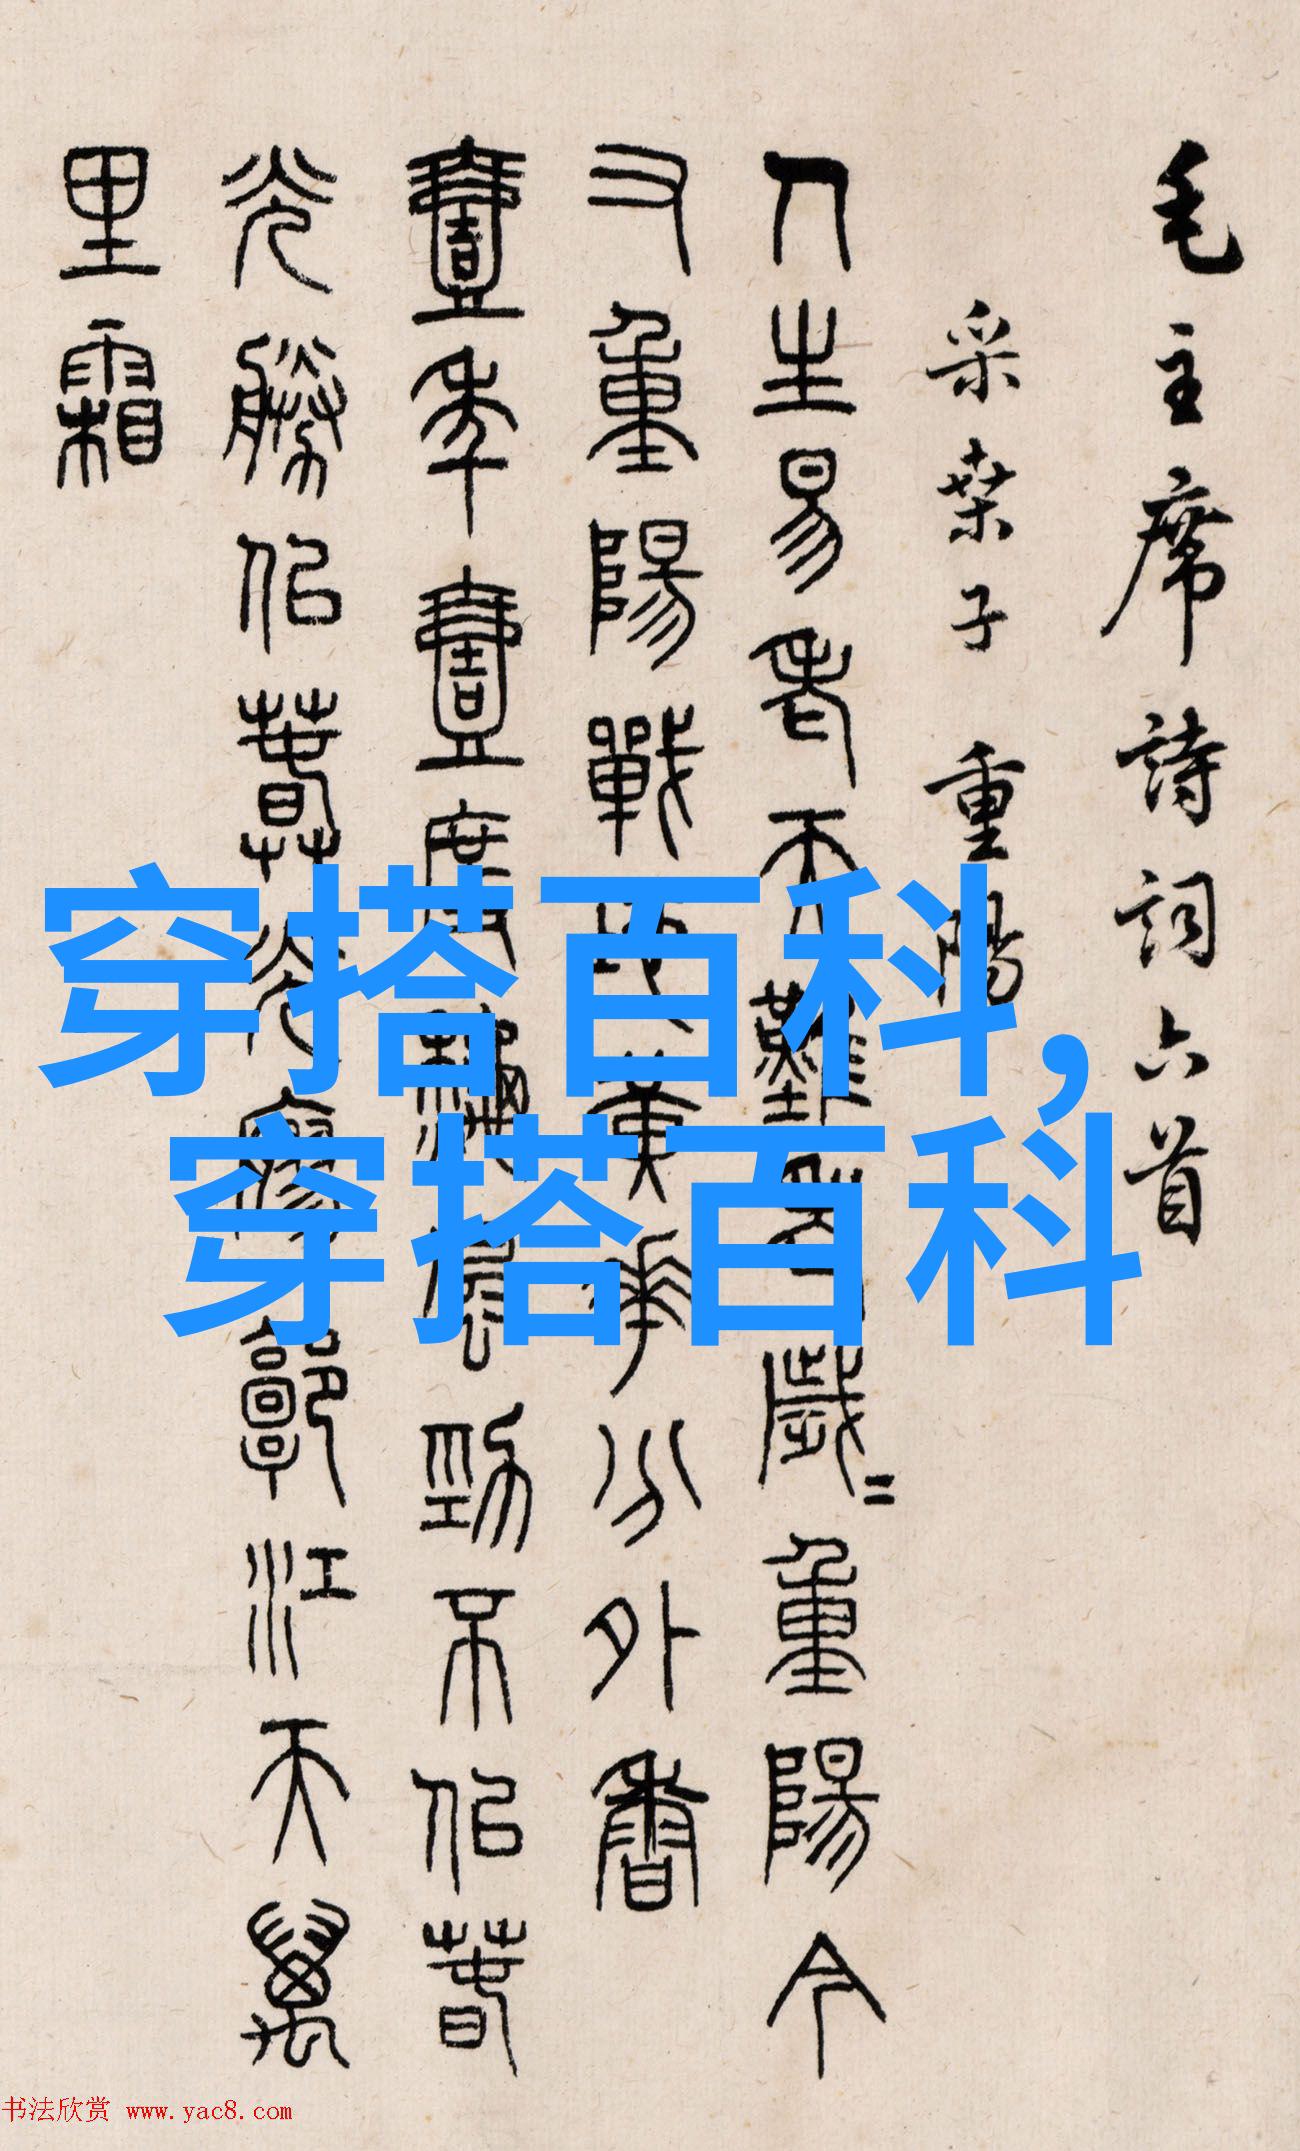 毛主席詩詞六首
采桑子 重陽
人生易老天難老歲〻重陽今
又重陽戰地黃花分外香
壹年壹度秌風勁不佀萅
光勝佀萅光寥郭江天萬
里霜
穿搭百科,
穿搭百科
书法欣赏 www.yac8.com